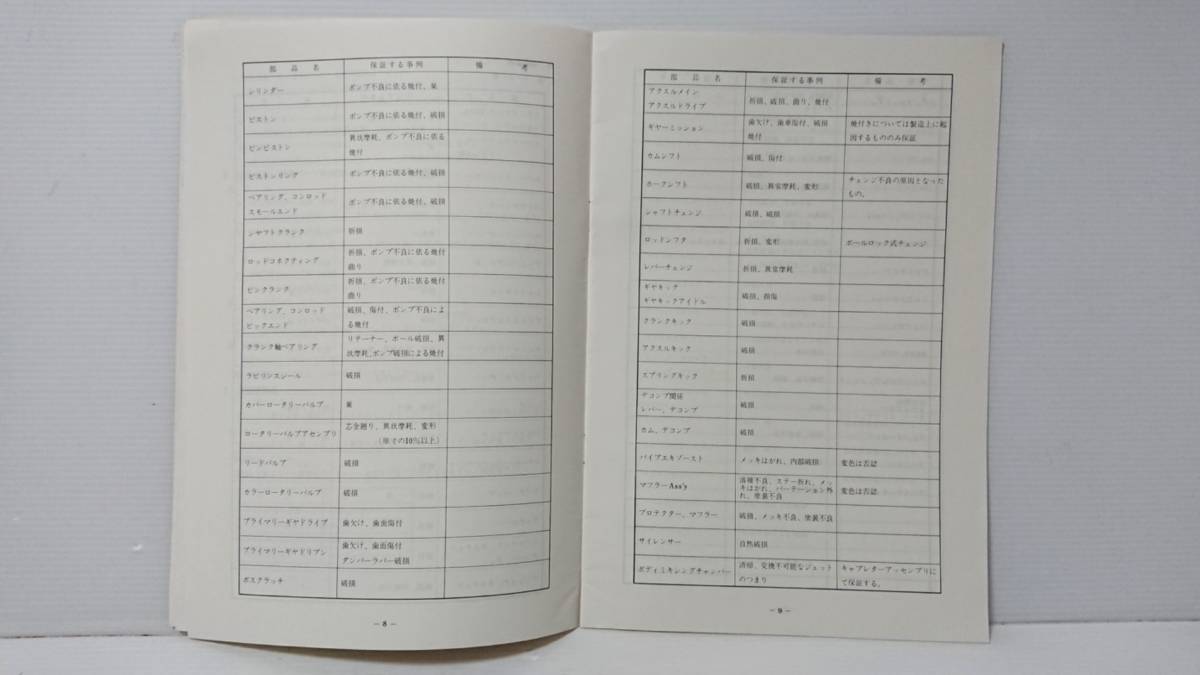 部品名 保証する事例 備考
シリンダー ポンプ不良に依る幾付、巣
ピストン ポンプ不良に依る幾付、破損
ピンピストン 異状摩耗、ポンプ不良に依る
幾付
ピストンリング ポンプ不良に依る幾付、破損
ベアリング、コンロッド
スモールエンド ポンプ不良に依る幾付、破損
シヤフトクランク 折損
ロッドコネクティング 折損、ポンプ不良に依る幾付
曲り
ピンクランク 折損、ポンプ不良に依る幾付
曲り
ベアリング、コンロッド 破損、傷付、ポンプ不良によ
ビックエンド る幾付
クランク軸ベアリング リテーナー、ボール破損、異
状摩耗、ポンプ破損による幾付
ラビリンスシール 破損
カバーロータリーバルブ 巣
ロータリーバルブアセンブリ 芯金廻り、異状摩耗、変形
(単での10%以上)
リードバルブ 破損
カラーロータリーバルブ 破損
プライマリーギヤドライブ 歯欠け、歯面傷付
プライマリーギヤドリブン 歯欠け、歯面傷付
ダンパーラバー破損
ボスクラッチ 破損
－8－
部品名 保証する事例 備考
アクスルメイン
アクスルドライブ 折損、破損、曲り、幾付
ギヤーミッション 歯欠け、歯車傷付、破損 幾付きについては製造上に起
幾付 因するもののみ保証
カムシフト 破損、傷付
ホークシフト 破損、異常摩耗、変形 チェンジ不良の原因となった
もの。
シャフトチェンジ 破損、破損
ロッドシフタ 折損、変形 ボールロック式チェンジ
レバーチェンジ 折損、異常摩耗
ギヤキック
ギヤキックアイドル 破損、損傷
クランクキック 破損
アクスルキック 破損
スプリングキック 折損
デコンプ関係
レバー、デコンプ 破損
カム、デコンプ 破損
パイプエキゾースト メッキはがれ、内部破損 変色は否認
マフラーAss'y 溶種不良、ステー折れ、メッ
キはがれ、パーテーション外 変色は否認
れ、塗装不良
プロテクター、マフラー 破損、メッキ不良、塗装不良
サイレンサー 自然破損
ボディミキシングチャンバー 清掃、交換不可能なジェット キャブレターアッセンブリに
のつまり て保証する。
－9－